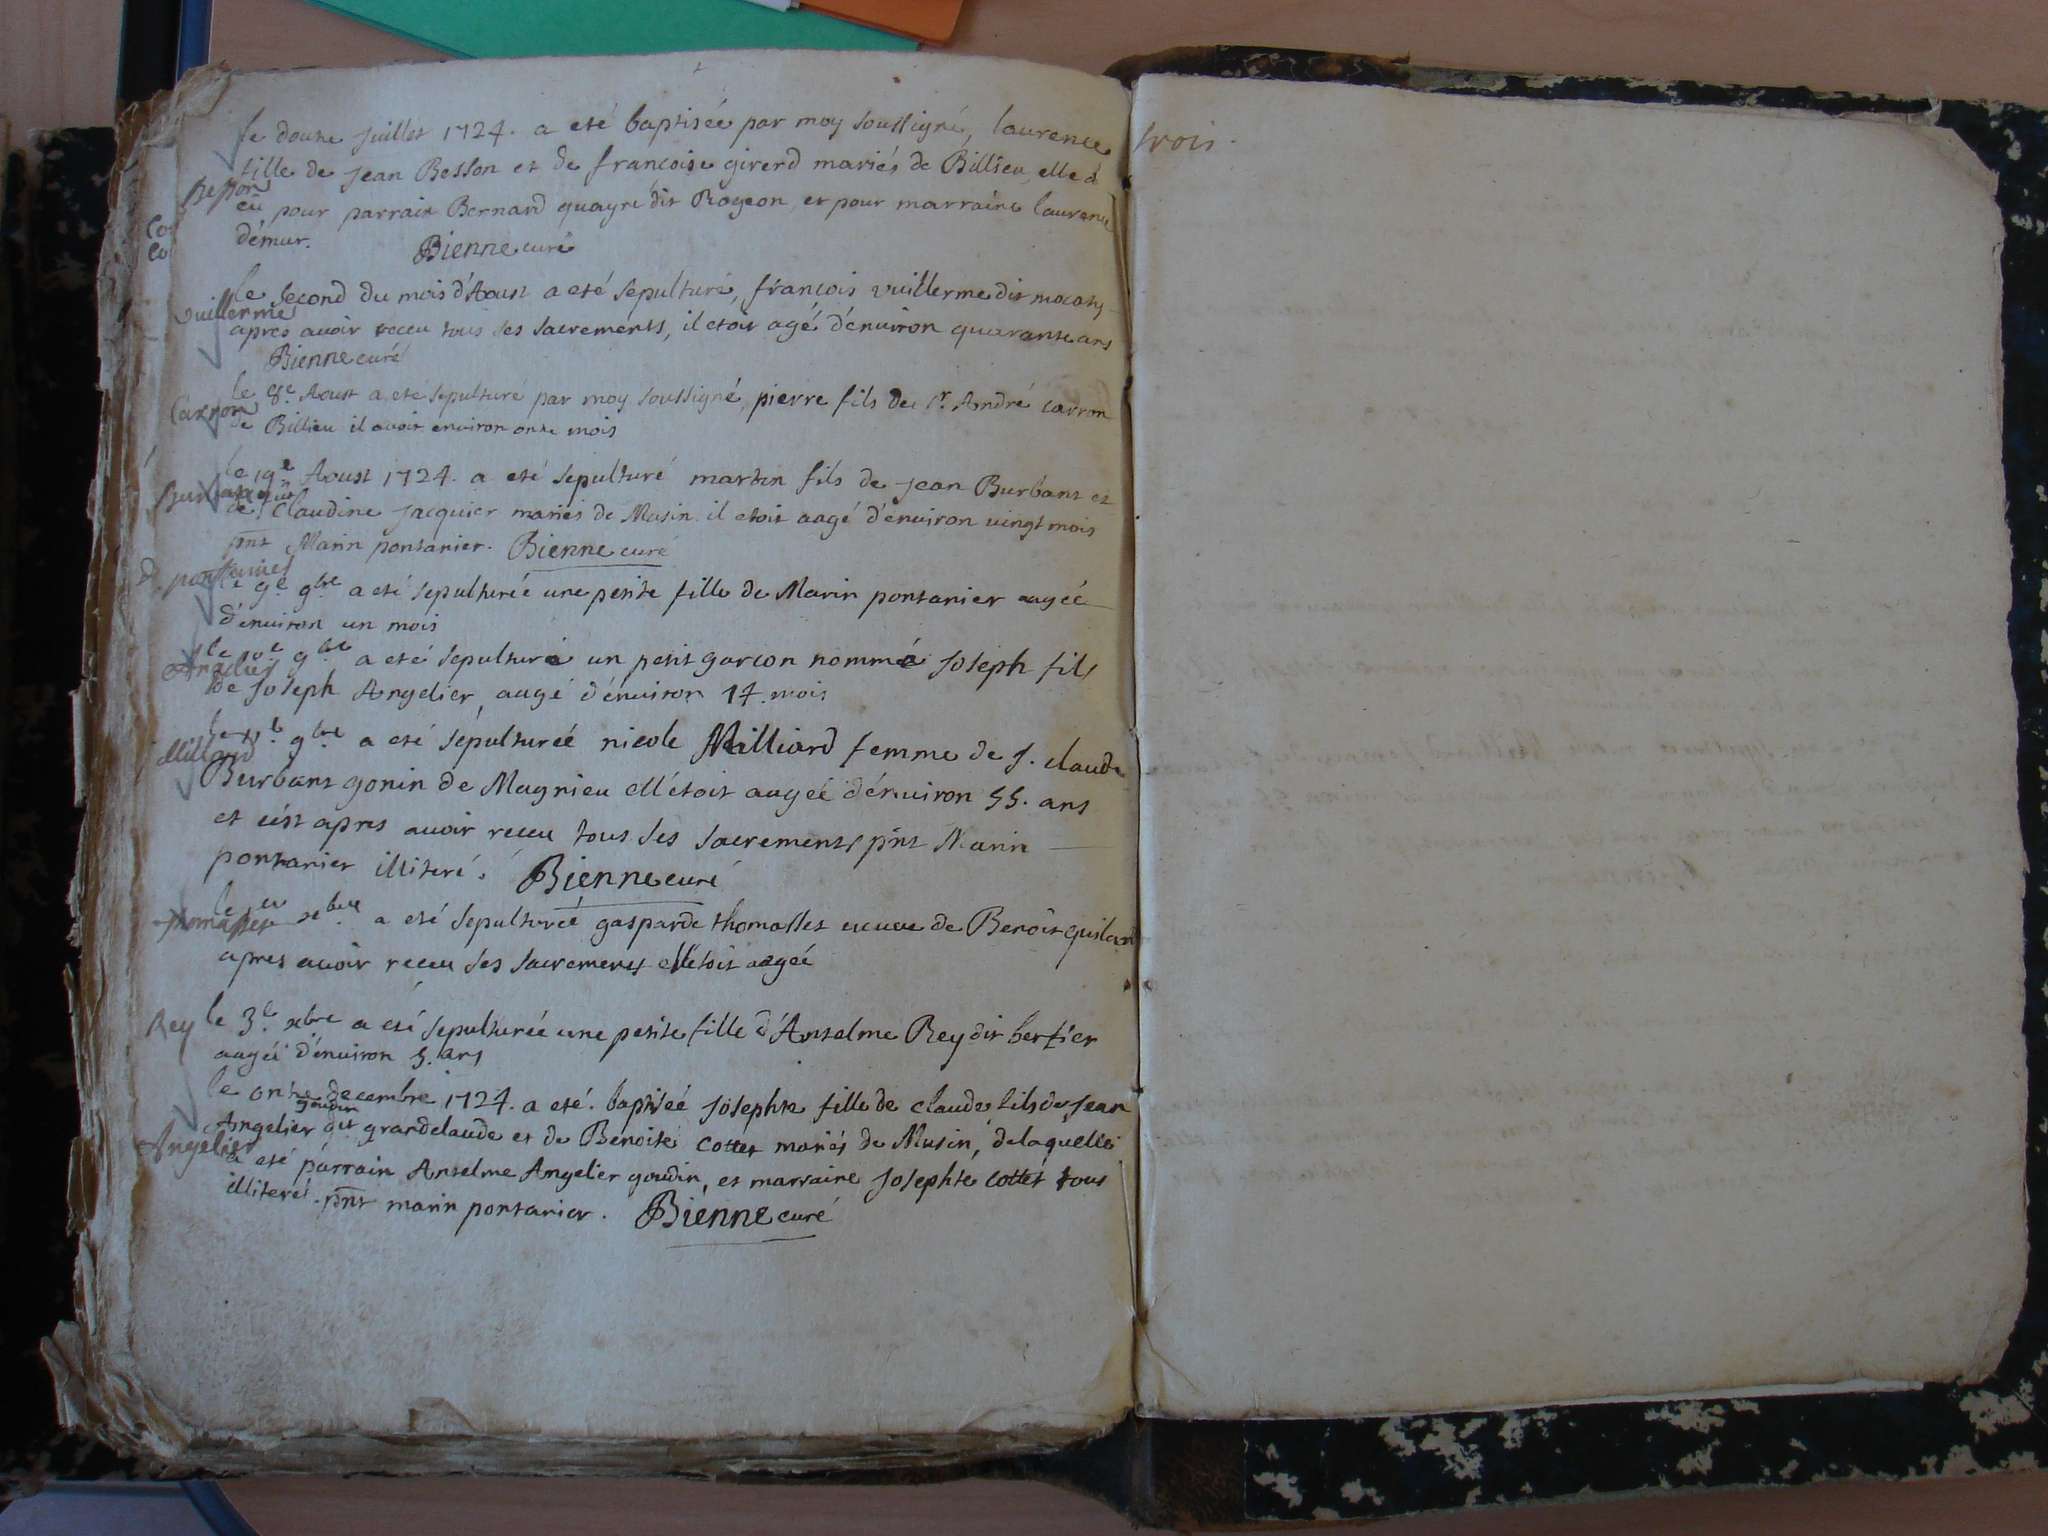 le douze Juillet 1724. a eté baptiseé par moy soussigné, laurence
fille de jean Besson et de francoise girerd mariés de Billieu, elle á
Besson
eu pour parrain Bernard quayre dit Rogeon, et pour marraine laurence
démur. Bienne curé
le second du mois d'Aoust a eté sepulturé, francois vuillerme dit
vuillerme
apres avoir receu tous ses sacrements, il etoit agé d'énuiron quarante ans
Bienne curé
le 8.e Aoust a eté sepulturé par moy soussigné, pierre fils de Sr. André carron
Carron
de Billieu il avoit environ onze mois
le 19e Aoust 1724. a eté sepulturé martin fils de jean Burbant et
de Claudine jacquier mariés de Musin il etoit aagé d'énuiron vingt mois
pnt Marin pontanier. Bienne curé
pontanier
le 9e 9bre a eté sepultureé une petite fille de Marin pontanier aageé
d'énuiron un mois
le 9bre a eté sepulturé un petit garcon nommé Joseph fils
Angelier
de Joseph Angelier, aagé d'énuiron 14. mois
le 9bre a eté sépultureé nicole Milliard femme de J. claude
Milliard
Burbant gonin de Magnieu ell'étoit aageé d'énuiron 55. ans
et c'est apres auoir receu tous ses sacrements pnt Marin
pontanier illiteré. Bienne curé
le xbre a eté sepultureé gasparde thomasset ueuue de Benoit Guilard
thomasset
apres auoir receu ses sacrements ell'etoit aageé
Rey le 3e xbre a eté sepultureé une petite fille d'Anselme Rey dit bertier
aageé d'énuiron 5. ans
le onze decembre 1724. a eté. baptiseé Josephte fille de claude fils de Jean
goudin
Angelier dit grandclaude et de Benoite cottet mariés de Musin, de laquelle
Angelier
a eté parrain Anselme Angelier goudin, et marraine Josephte cottet tous
illiterés. pnt marin pontanier. Bienne curé
trois.